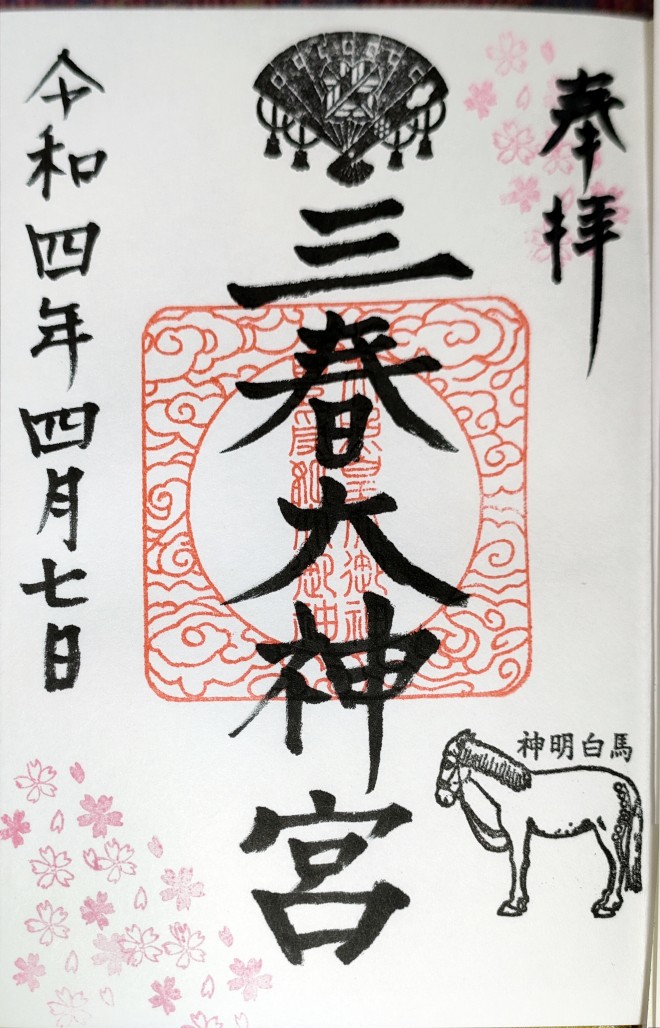 奉拝
三春大神宮
令和四年四月七日
神明白馬